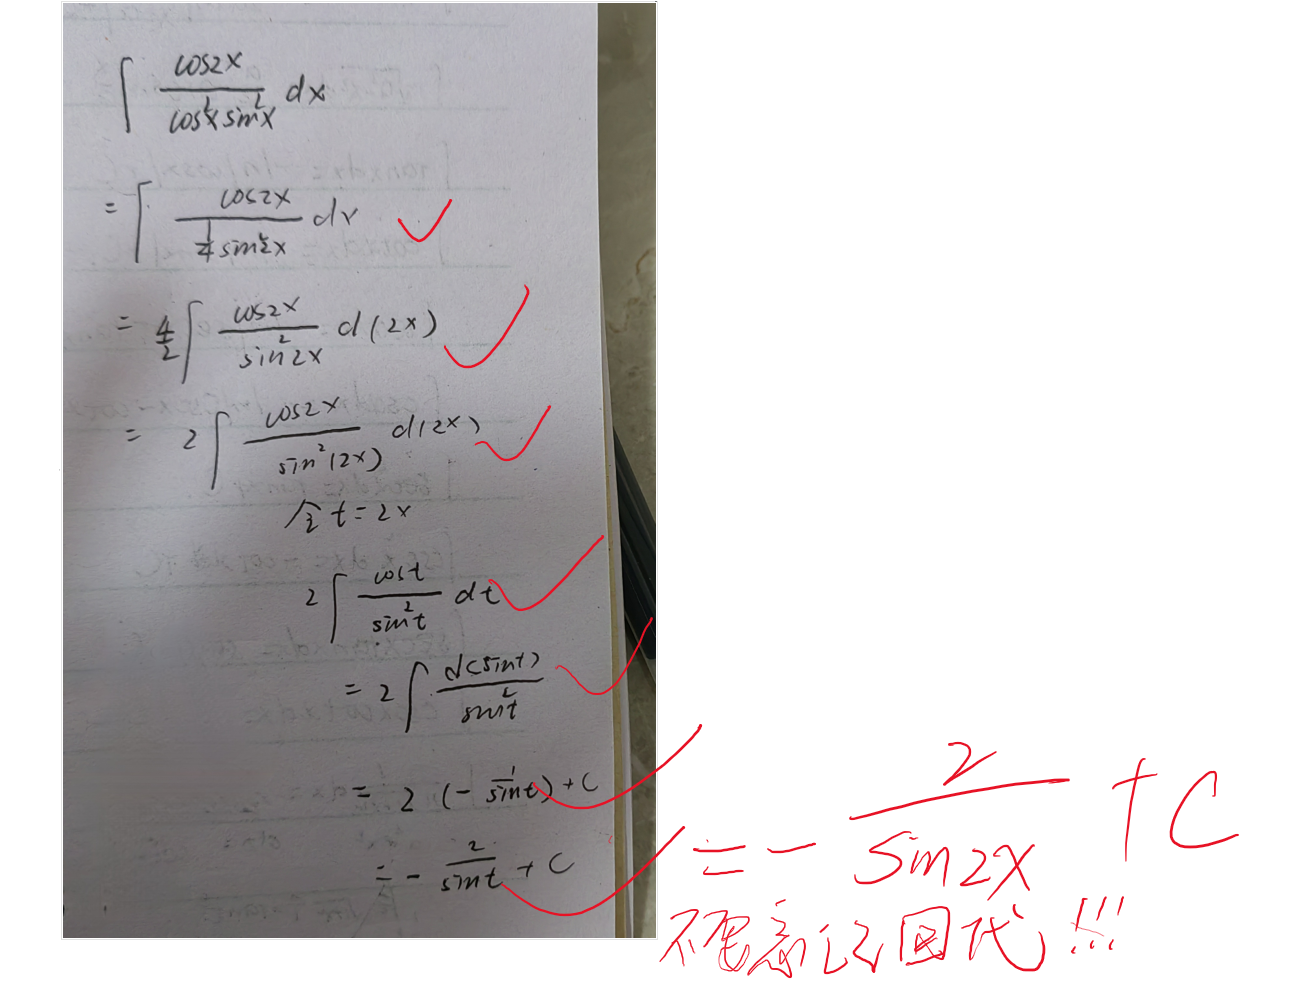 ∫ cos2x / (cos²x sin²x) dx
= ∫ cos2x / (1/4 sin²2x) dx
= 4/2 ∫ cos2x / sin²2x d(2x)
= 2 ∫ cos2x / sin²(2x) d(2x)
令 t = 2x
2 ∫ cost / sin²t dt
= 2 ∫ d(sint) / sin²t
= 2 (- 1/sint) + C
= - 2/sint + C
= - 2/sin2x + C
回代!!!